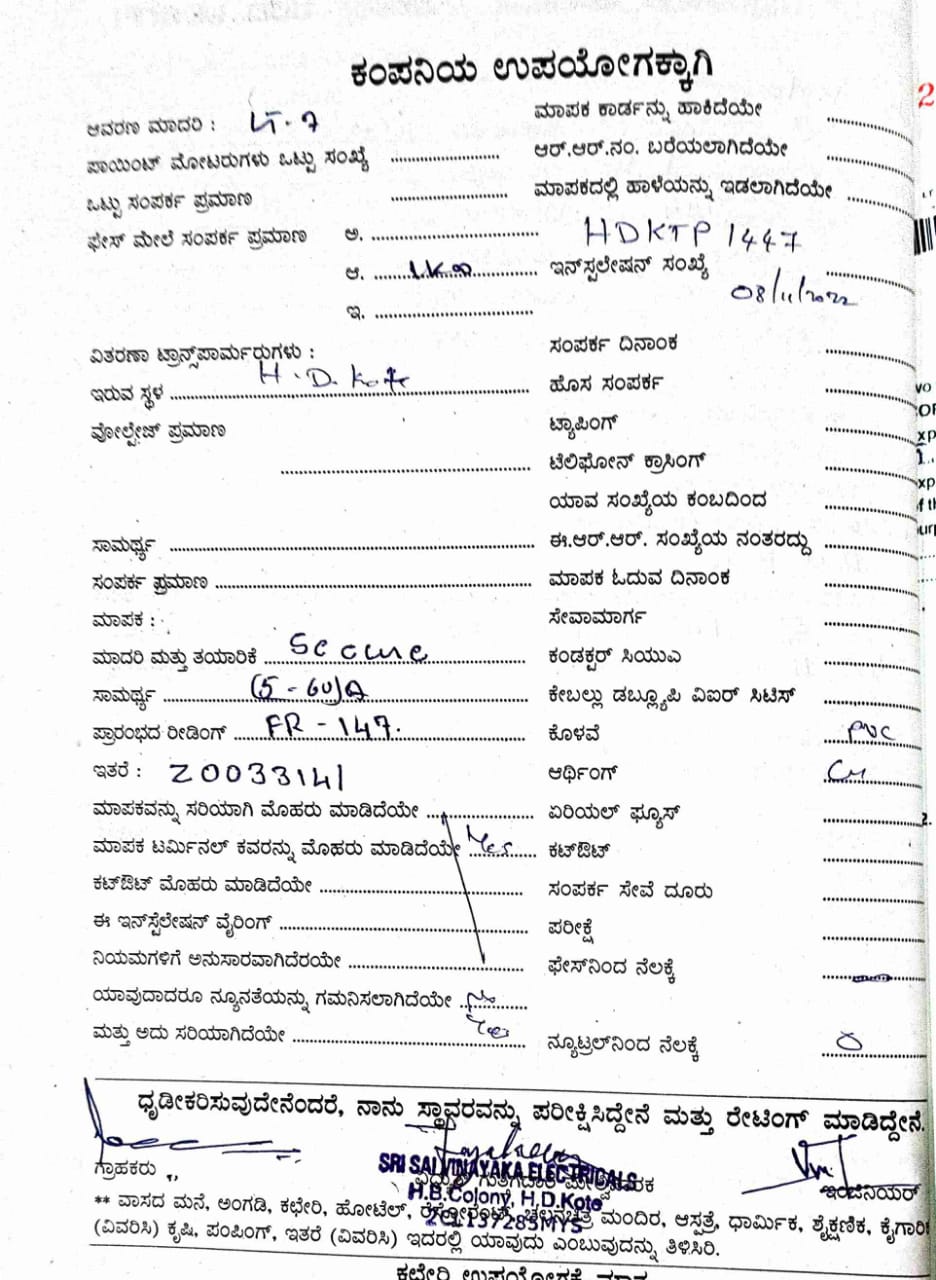 ಕಂಪನಿಯ ಉಪಯೋಗಕ್ಕಾಗಿ
2
ಆವರಣ ಮಾದರಿ : LT-7 ಮಾಪಕ ಕಾರ್ಡನ್ನು ಹಾಕಿದೆಯೇ
ಪಾಯಿಂಟ್ ಮೋಟರುಗಳು ಒಟ್ಟು ಸಂಖ್ಯೆ ಆರ್.ಆರ್.ನಂ. ಬರೆಯಲಾಗಿದೆಯೇ
ಒಟ್ಟು ಸಂಪರ್ಕ ಪ್ರಮಾಣ ಮಾಪಕದಲ್ಲಿ ಹಾಳೆಯನ್ನು ಇಡಲಾಗಿದೆಯೇ
ಫೇಸ್ ಮೇಲೆ ಸಂಪರ್ಕ ಪ್ರಮಾಣ ಅ. HDKTP 1447
ಆ. ಇನ್‌ಸ್ಟಲೇಷನ್ ಸಂಖ್ಯೆ
ಇ. 08/11/2022
ವಿತರಣಾ ಟ್ರಾನ್ಸ್‌ಪಾರ್ಮರುಗಳು : ಸಂಪರ್ಕ ದಿನಾಂಕ
ಇರುವ ಸ್ಥಳ H.D. Kote ಹೊಸ ಸಂಪರ್ಕ
ವೋಲ್ಟೇಜ್ ಪ್ರಮಾಣ ಟ್ಯಾಪಿಂಗ್
ಟೆಲಿಫೋನ್ ಕ್ರಾಸಿಂಗ್
ಯಾವ ಸಂಖ್ಯೆಯ ಕಂಬದಿಂದ
ಸಾಮರ್ಥ್ಯ ಈ.ಆರ್.ಆರ್. ಸಂಖ್ಯೆಯ ನಂತರದ್ದು
ಸಂಪರ್ಕ ಪ್ರಮಾಣ ಮಾಪಕ ಓದುವ ದಿನಾಂಕ
ಮಾಪಕ : ಸೇವಾಮಾರ್ಗ
ಮಾದರಿ ಮತ್ತು ತಯಾರಿಕೆ Secure ಕಂಡಕ್ಟರ್ ಸಿಯುಎ
ಸಾಮರ್ಥ್ಯ (5-60)A ಕೇಬಲ್ಲು ಡಬ್ಲ್ಯೂಪಿ ವಿಐರ್ ಸಿಟಿಸ್
ಪ್ರಾರಂಭದ ರೀಡಿಂಗ್ FR - 147. ಕೊಳವೆ PVC
ಇತರೆ : Z0033141 ಆರ್ಥಿಂಗ್
ಮಾಪಕವನ್ನು ಸರಿಯಾಗಿ ಮೊಹರು ಮಾಡಿದೆಯೇ ಏರಿಯಲ್ ಫ್ಯೂಸ್
ಮಾಪಕ ಟರ್ಮಿನಲ್ ಕವರನ್ನು ಮೊಹರು ಮಾಡಿದೆಯೇ Yes ಕಟ್‌ಔಟ್
ಕಟ್‌ಔಟ್ ಮೊಹರು ಮಾಡಿದೆಯೇ ಸಂಪರ್ಕ ಸೇವೆ ದೂರು
ಈ ಇನ್‌ಸ್ಟೆಲೇಷನ್ ವೈರಿಂಗ್ ಪರೀಕ್ಷೆ
ನಿಯಮಗಳಿಗೆ ಅನುಸಾರವಾಗಿದೆರಯೇ ಫೇಸ್‌ನಿಂದ ನೆಲಕ್ಕೆ
ಯಾವುದಾದರೂ ನ್ಯೂನತೆಯನ್ನು ಗಮನಿಸಲಾಗಿದೆಯೇ No
ಮತ್ತು ಅದು ಸರಿಯಾಗಿದೆಯೇ Yes ನ್ಯೂಟ್ರಲ್‌ನಿಂದ ನೆಲಕ್ಕೆ 0
ಧೃಡೀಕರಿಸುವುದೇನೆಂದರೆ, ನಾನು ಸ್ಥಾವರವನ್ನು ಪರೀಕ್ಷಿಸಿದ್ದೇನೆ ಮತ್ತು ರೇಟಿಂಗ್ ಮಾಡಿದ್ದೇನೆ.
ಗ್ರಾಹಕರು ಇಂಜಿನಿಯರ್
SRI SAI VINAYAKA ELECTRICALS
H.B.Colony, H.D.Kote
2CL137283MYS
** ವಾಸದ ಮನೆ, ಅಂಗಡಿ, ಕಛೇರಿ, ಹೋಟೆಲ್, ರೆಸ್ಟೋರೆಂಟ್, ಚಲನಚಿತ್ರ ಮಂದಿರ, ಆಸ್ಪತ್ರೆ, ಧಾರ್ಮಿಕ, ಶೈಕ್ಷಣಿಕ, ಕೈಗಾರಿ
(ವಿವರಿಸಿ) ಕೃಷಿ, ಪಂಪಿಂಗ್, ಇತರೆ (ವಿವರಿಸಿ) ಇದರಲ್ಲಿ ಯಾವುದು ಎಂಬುವುದನ್ನು ತಿಳಿಸಿರಿ.